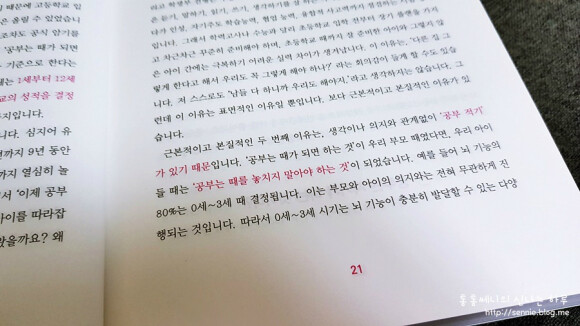 때문에 고등학교 입
은 쏠릴 수 있습니
조차도 공식 암기를
'공부는 때가 되면
기준으로 한다면
는 1세부터 12세
교의 성적을 결정
지입니다.
니다. 심지어 유
까지 9년 동안
까지 열심히 놀
서 '이제 공부
아이를 따라잡
왔을까요? 왜
은 듣기, 말하기, 읽기, 쓰기, 생각하기를
다가 인성, 자기주도 학습능력, 협업 능력, 융합적 사고력까지
입니다. 그래서 학력고사나 수능과 달리 초등학교 입학 전부터 장기 플랜을 가지
고 차근차근 꾸준히 준비해야 하며, 초등학교 때까지 잘 준비한 아이와 그렇지 않
은 아이 간에는 극복하기 어려운 실력 차이가 생겨납니다. 이 이유는, '다른 집 그
렇게 한다고 해서 우리도 꼭 그렇게 해야 하나?' 라는 회의감이 들게 할 수도 있습
니다. 저 스스로도 '남들 다 하니까 우리도 해야지.'라고 생각하지는 않습니다. 그
런데 이 이유는 표면적인 이유일 뿐입니다. 보다 근본적이고 본질적인 이유가 있
습니다.
근본적이고 본질적인 두 번째 이유는, 생각이나 의지와 관계없이 '공부 적기'
가 있기 때문입니다. '공부는 때가 되면 하는 것'이 우리 부모 때였다면, 우리 아이
들 때는 '공부는 때를 놓치지 말아야 하는 것'이 되었습니다. 예를 들어 뇌 기능의
80%는 0세~3세 때 결정됩니다. 이는 부모와 아이의 의지와는 전혀 무관하게 진
행되는 것입니다. 따라서 0세~3세 시기는 뇌 기능이 충분히 발달할 수 있는 다양
21
http://sennie.blog.me